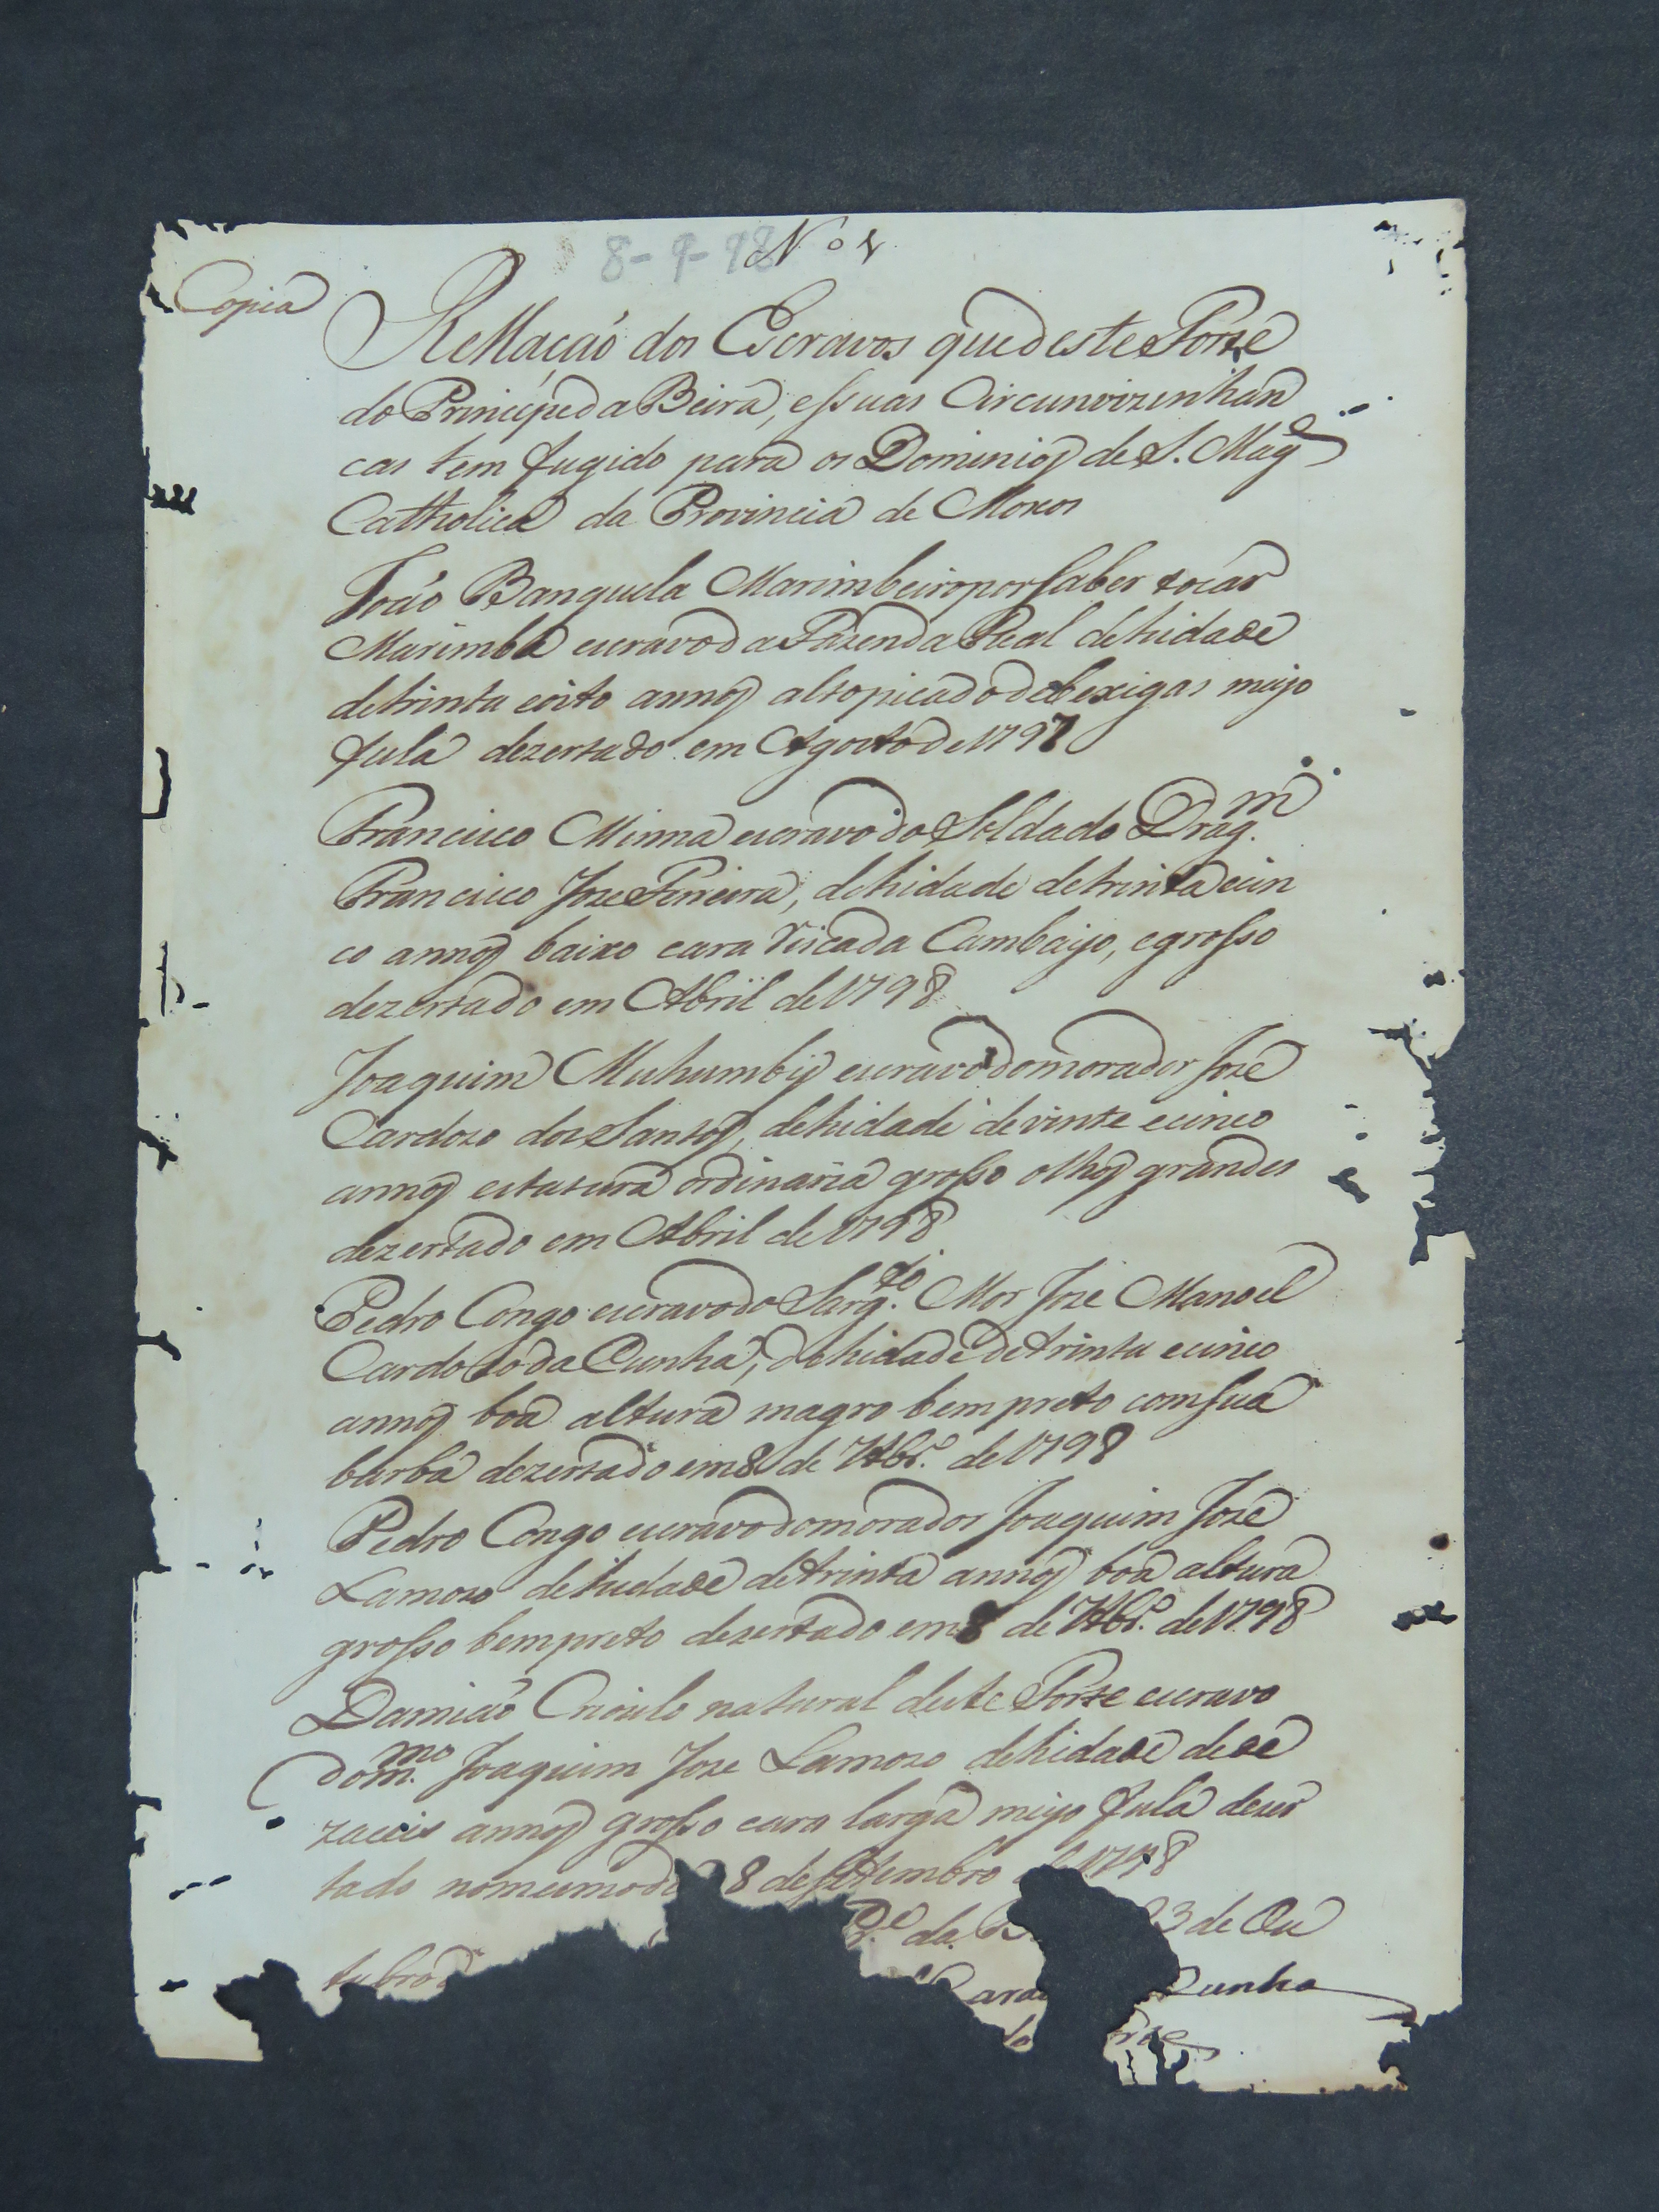 8-9-98 Nº 1
Copia
Rellação dos Escravos que deste Forte
do Principe da Beira, e ssuas Circunvizinhan
cas tem fugido para os Dominios de S. Mage
Catholica da Provincia de Moxos
João Banguela Marimbeiro por saber tocar
Marimba escravo da Fazenda Real de hidade
de trinta eoito annos alto picado de bexigas meyo
fula dezertado em Agosto de 1797
Francisco Minna escravo do Soldado Dragm.
Francisco Joze Ferreira, de hidade de trinta ecin
co annos baixo cara riscada Cambayo, e grosso
dezertado em Abril de 1798
Joaquim Muhumby escravo do morador José
Cardozo dos Santos, de hidade de vinte ecinco
annos estatura ordinaria grosso olhos grandes
dezertado em Abril de 1798
Pedro Congo escravo do Sargto. Mor Joze Manoel
Cardozo da Cunha, de hidade de trinta ecinco
annos boa altura magro bem preto com sua
barba dezertado em 8 de 7tbro. de 1798
Pedro Congo escravo do morador Joaquim José
Lamozo de hidade de trinta annos boa altura
grosso bem preto dezertado em 8 de 7tbro. de 1798
Damião Crioulo natural deste Forte escravo
do mmo. Joaquim Joze Lamozo de hidade de de
zaceis annos grosso cara larga meyo fula dezer
tado no mesmo di 8 de setembro 1798
Pe. da B 23 de Ou
tubro d
Card Cunha